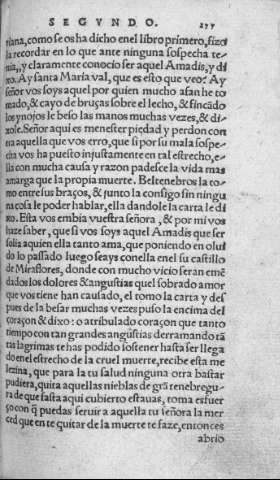 SEGVNDO. 277
riana, como se os ha dicho enel libro primero, fizo
la recordar en lo que ante ninguna sospecha te-
nia, y claramente conoscio ser aquel Amadis, y di
xo. Ay santa Maria val, que es esto que veo: Ay
señor vos soys aquel por quien mucho afan he to
mado, & cayo de bruças sobre el lecho, & fincādo
los ynojos le beso las manos muchas vezes, & di-
xole. Señor aqui es menester piedad y perdon con
tra aquella que vos erro, que si por su mala sospe-
cha vos ha puesto injustamente en tal estrecho, e-
lla con mucha causa y razon padesce la vida mas
amarga que la propia muerte. Beltenebros la to-
mo entre sus braços, & junto la consigo sin ningu
na cosa le poder hablar, ella dandole la carta le di
xo. Esta vos embia vuestra señora, & por mi vos
haze saber, que si vos soys aquel Amadis que ser
solia aquien ella tanto ama, que poniendo en olui
do lo passado luego seays conella enel su castillo
de Miraflores, donde con mucho vicio seran emē
dados los dolores & angustias quel sobrado amor
que vos tiene han causado, el tomo la carta y des
pues de la besar muchas vezes puso la encima del
coraçon & dixo: o atribulado coraçon que tanto
tiempo con tan grandes angustias derramando tā
tas lagrimas te has podido sostener hasta ser llega
do enel estrecho de la cruel muerte, recibe esta me
lezina, que para la tu salud ninguna otra bastar
pudiera, quita aquellas nieblas de grā tenebregu-
ra de que fasta aqui cubierto estauas, toma esfuer
ço con q̄ puedas seruir a aquella tu señora la mer
ced que en te quitar de la muerte te faze, entonces
abrio